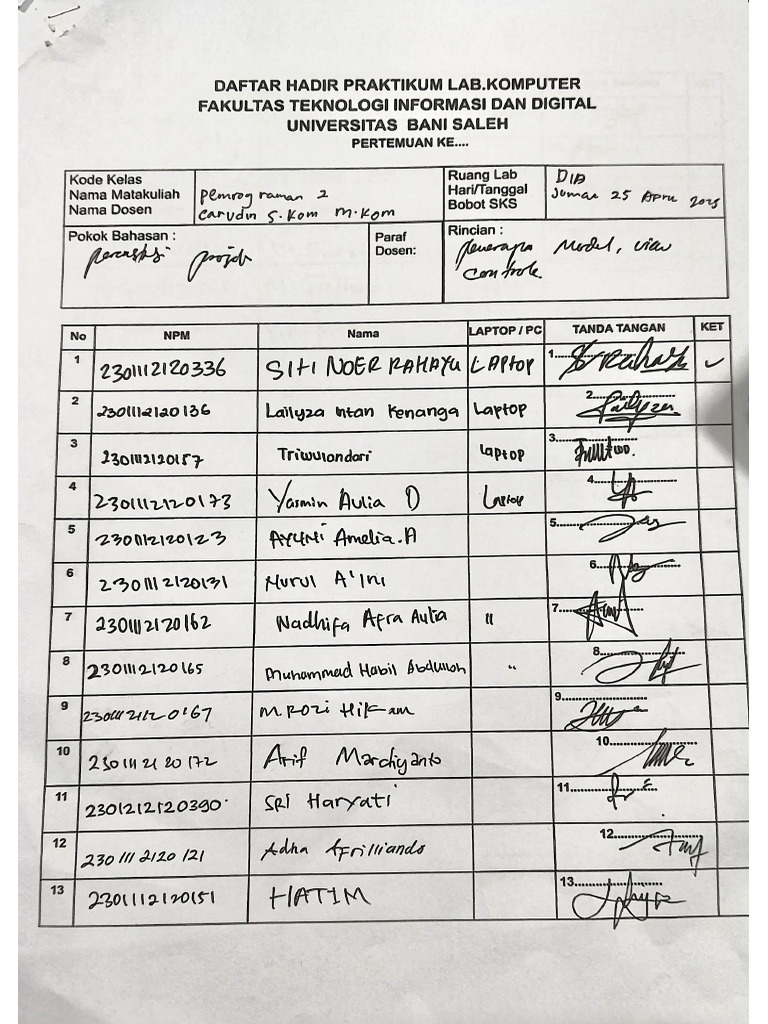 DAFTAR HADIR PRAKTIKUM LAB.KOMPUTER
FAKULTAS TEKNOLOGI INFORMASI DAN DIGITAL
UNIVERSITAS BANI SALEH
PERTEMUAN KE....
Kode Kelas
Nama Matakuliah Pemrograman 2
Nama Dosen Carudin S.Kom M.Kom
Ruang Lab
Hari/Tanggal Jumat 25 April 2025
Bobot SKS
Pokok Bahasan :
Paraf
Dosen:
Rincian :
Model, View
No NPM Nama LAPTOP / PC TANDA TANGAN KET
1 2301112120336 SITI NOER RAHAYU LAPTOP 1
2 2301112120136 Lailyza Intan Kenanga Laptop 2
3 2301112120157 Triwulandari Laptop 3
4 2301112120173 Yasmin Aulia D Laptop 4
5 2301112120123 AYUNI Amelia.A 5
6 2301112120131 Nurul A'ini 6
7 2301112120162 Nadhifa Afra Aulia " 7
8 2301112120165 Muhammad Habil Abdulloh " 8
9 2301112120167 M ROZI Hikam 9
10 2301112120172 Arif Mardiyanto 10
11 2301212120390 SRI Haryati 11
12 2301112120121 Adha Afrilliando 12
13 2301112120151 HATIM 13